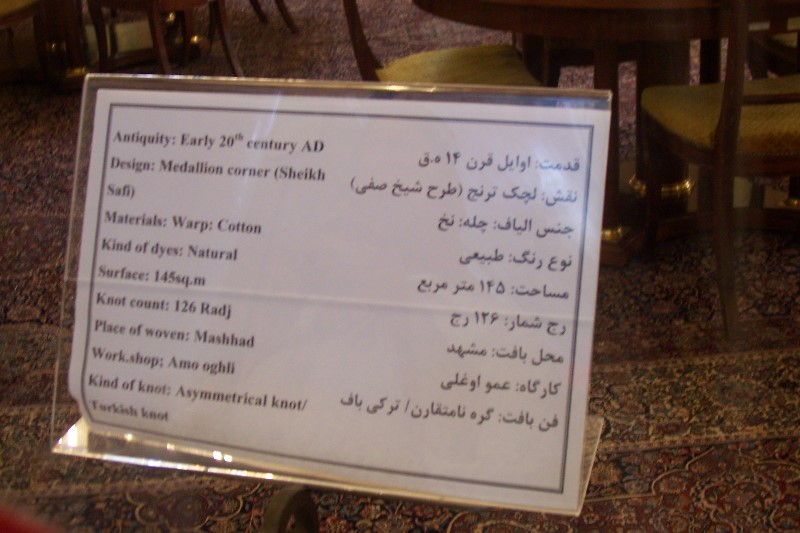 Antiquity: Early 20th century AD
Design: Medallion corner (Sheikh
Safi)
Materials: Warp: Cotton
Kind of dyes: Natural
Surface: 145sq.m
Knot count: 126 Radj
Place of woven: Mashhad
Work.shop; Amo oghli
Kind of knot: Asymmetrical knot/
Turkish knot
قدمت: اوایل قرن ۱۴ ه.ق
نقش: لچک ترنج (طرح شیخ صفی)
جنس الیاف: چله: نخ
نوع رنگ: طبیعی
مساحت: ۱۴۵ متر مربع
رج شمار: ۱۲۶ رج
محل بافت: مشهد
کارگاه: عمو اوغلی
فن بافت: گره نامتقارن/ ترکی باف